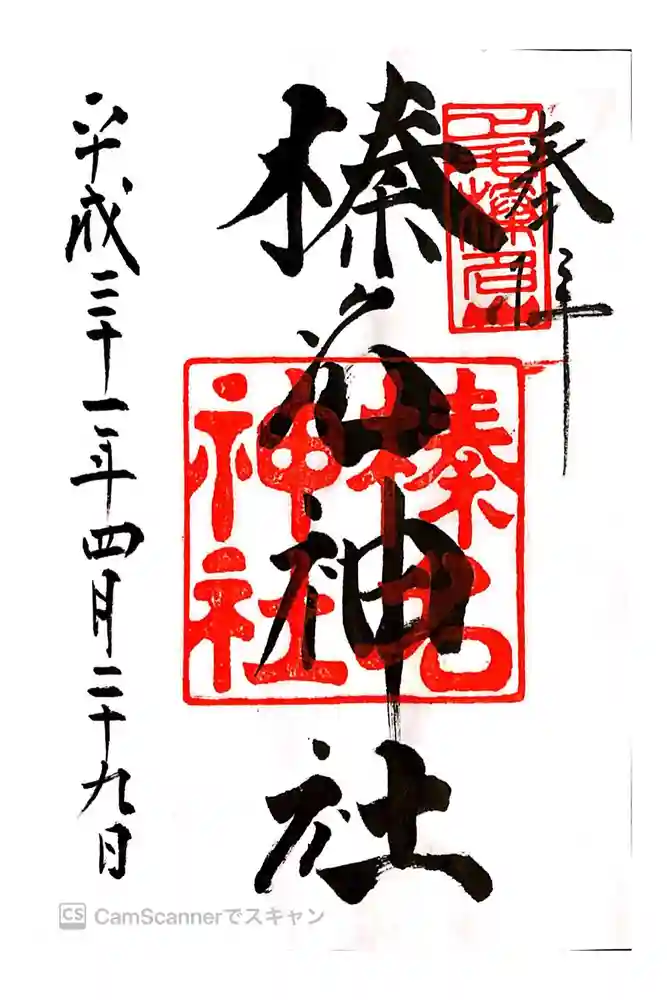 奉拝
上毛榛名山
榛名神社
榛名神社
平成三十一年四月二十九日
CS CamScannerでスキャン